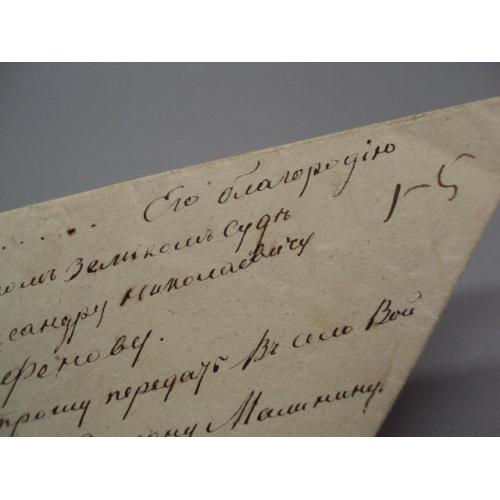 Его благородію
омъ Земскомъ Судѣ
сандру Николаевичу
феNову.
прошу передать Въ село Вой
ону Малинину.